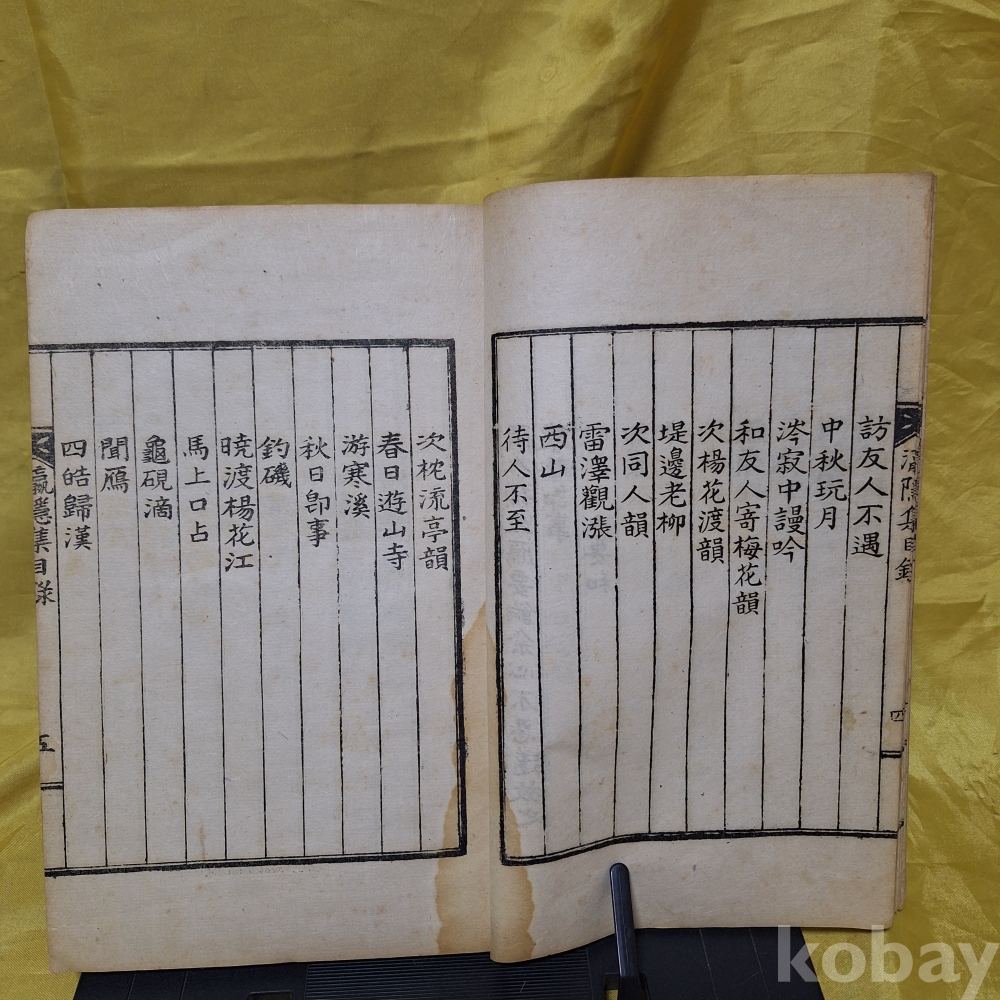 訪友人不遇
中秋玩月
涔寂中謾吟
和友人寄梅花韻
次楊花渡韻
堤邊老柳
次同人韻
雷澤觀漲
西山
待人不至
次枕流亭韻
春日遊山寺
游寒溪
秋日卽事
釣磯
曉渡楊花江
馬上口占
龜硯滴
聞鴈
四皓歸漢
瀛隱集目錄
五
kobay